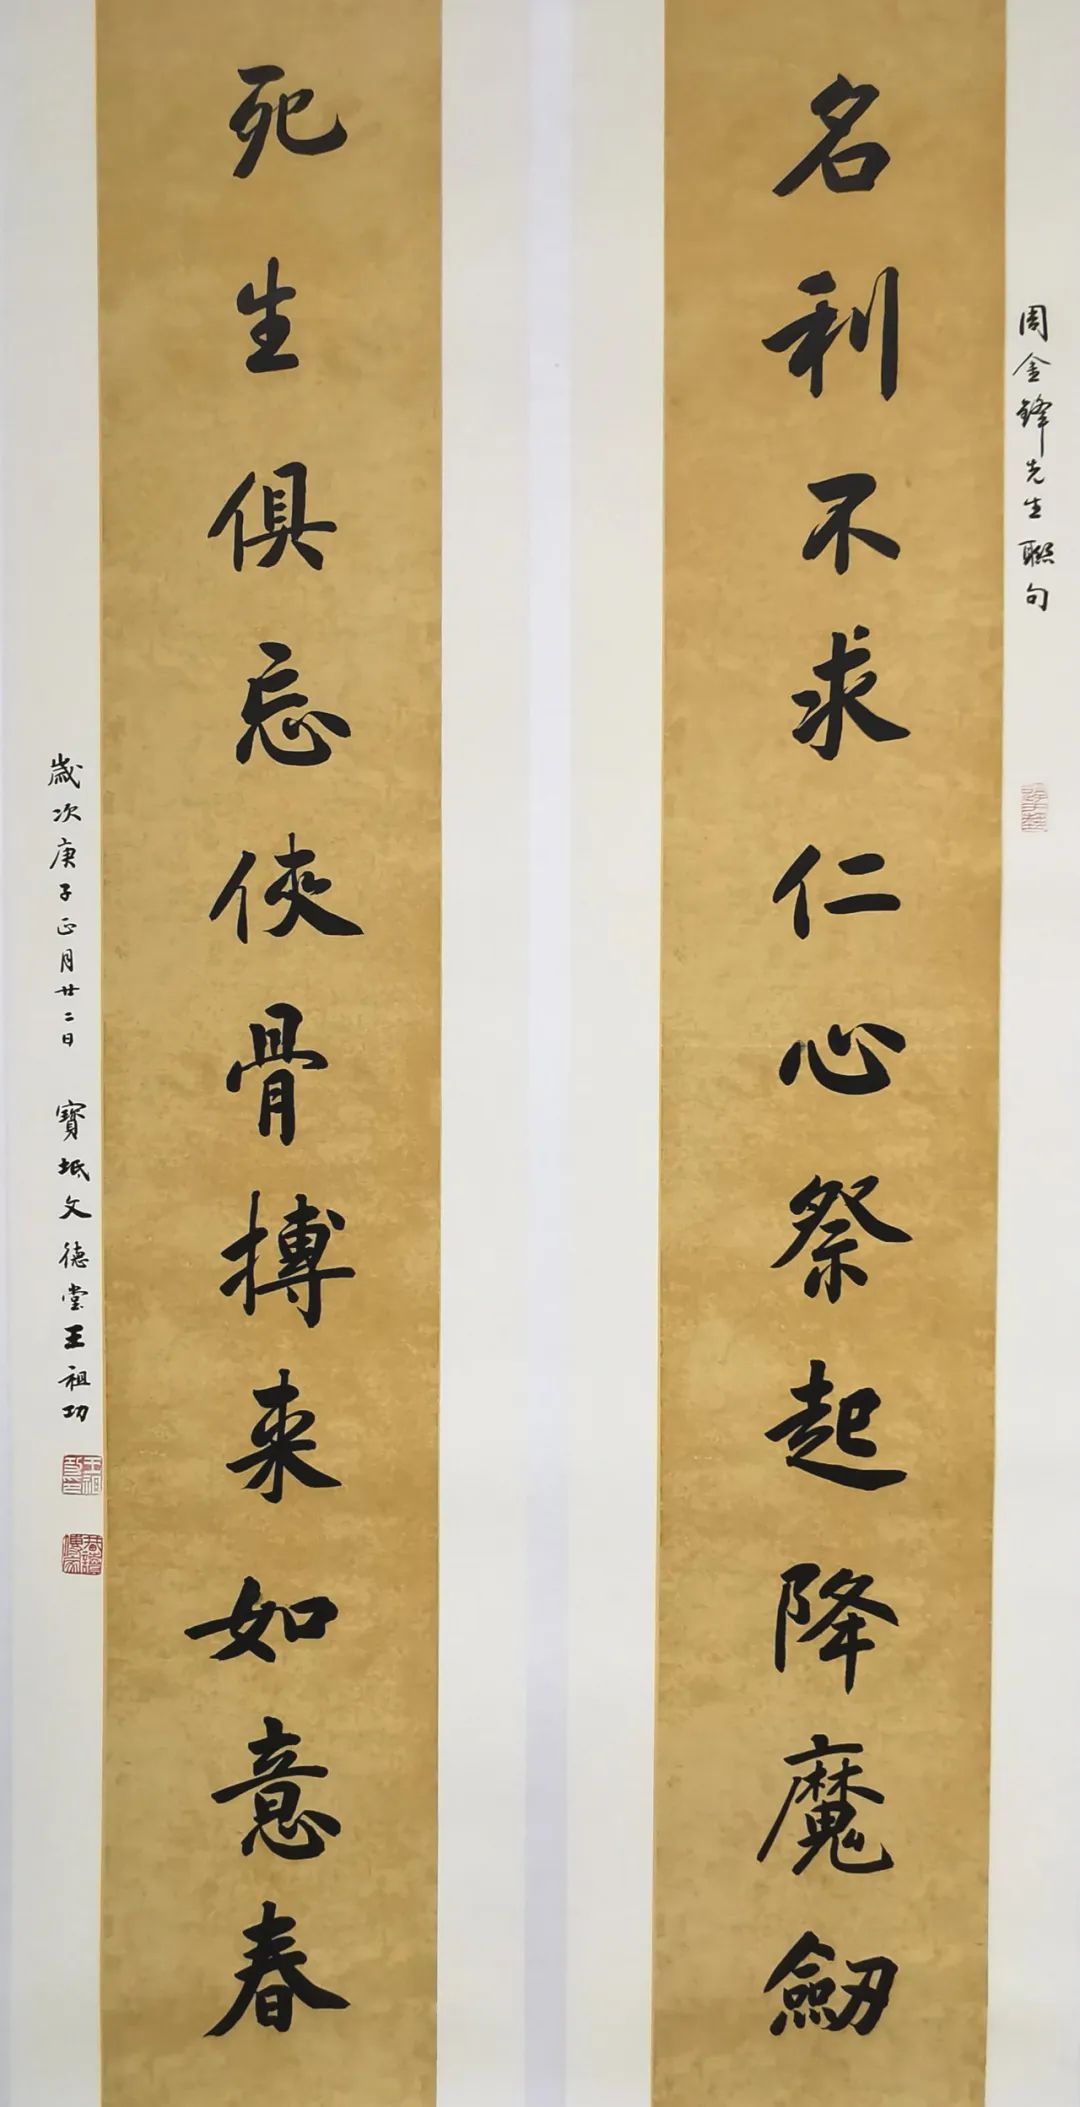 周金鋒先生聯句
名利不求仁心祭起降魔劒
死生俱忘俠骨摶来如意春
歲次庚子正月廿二日 寶坻文德堂王祖功